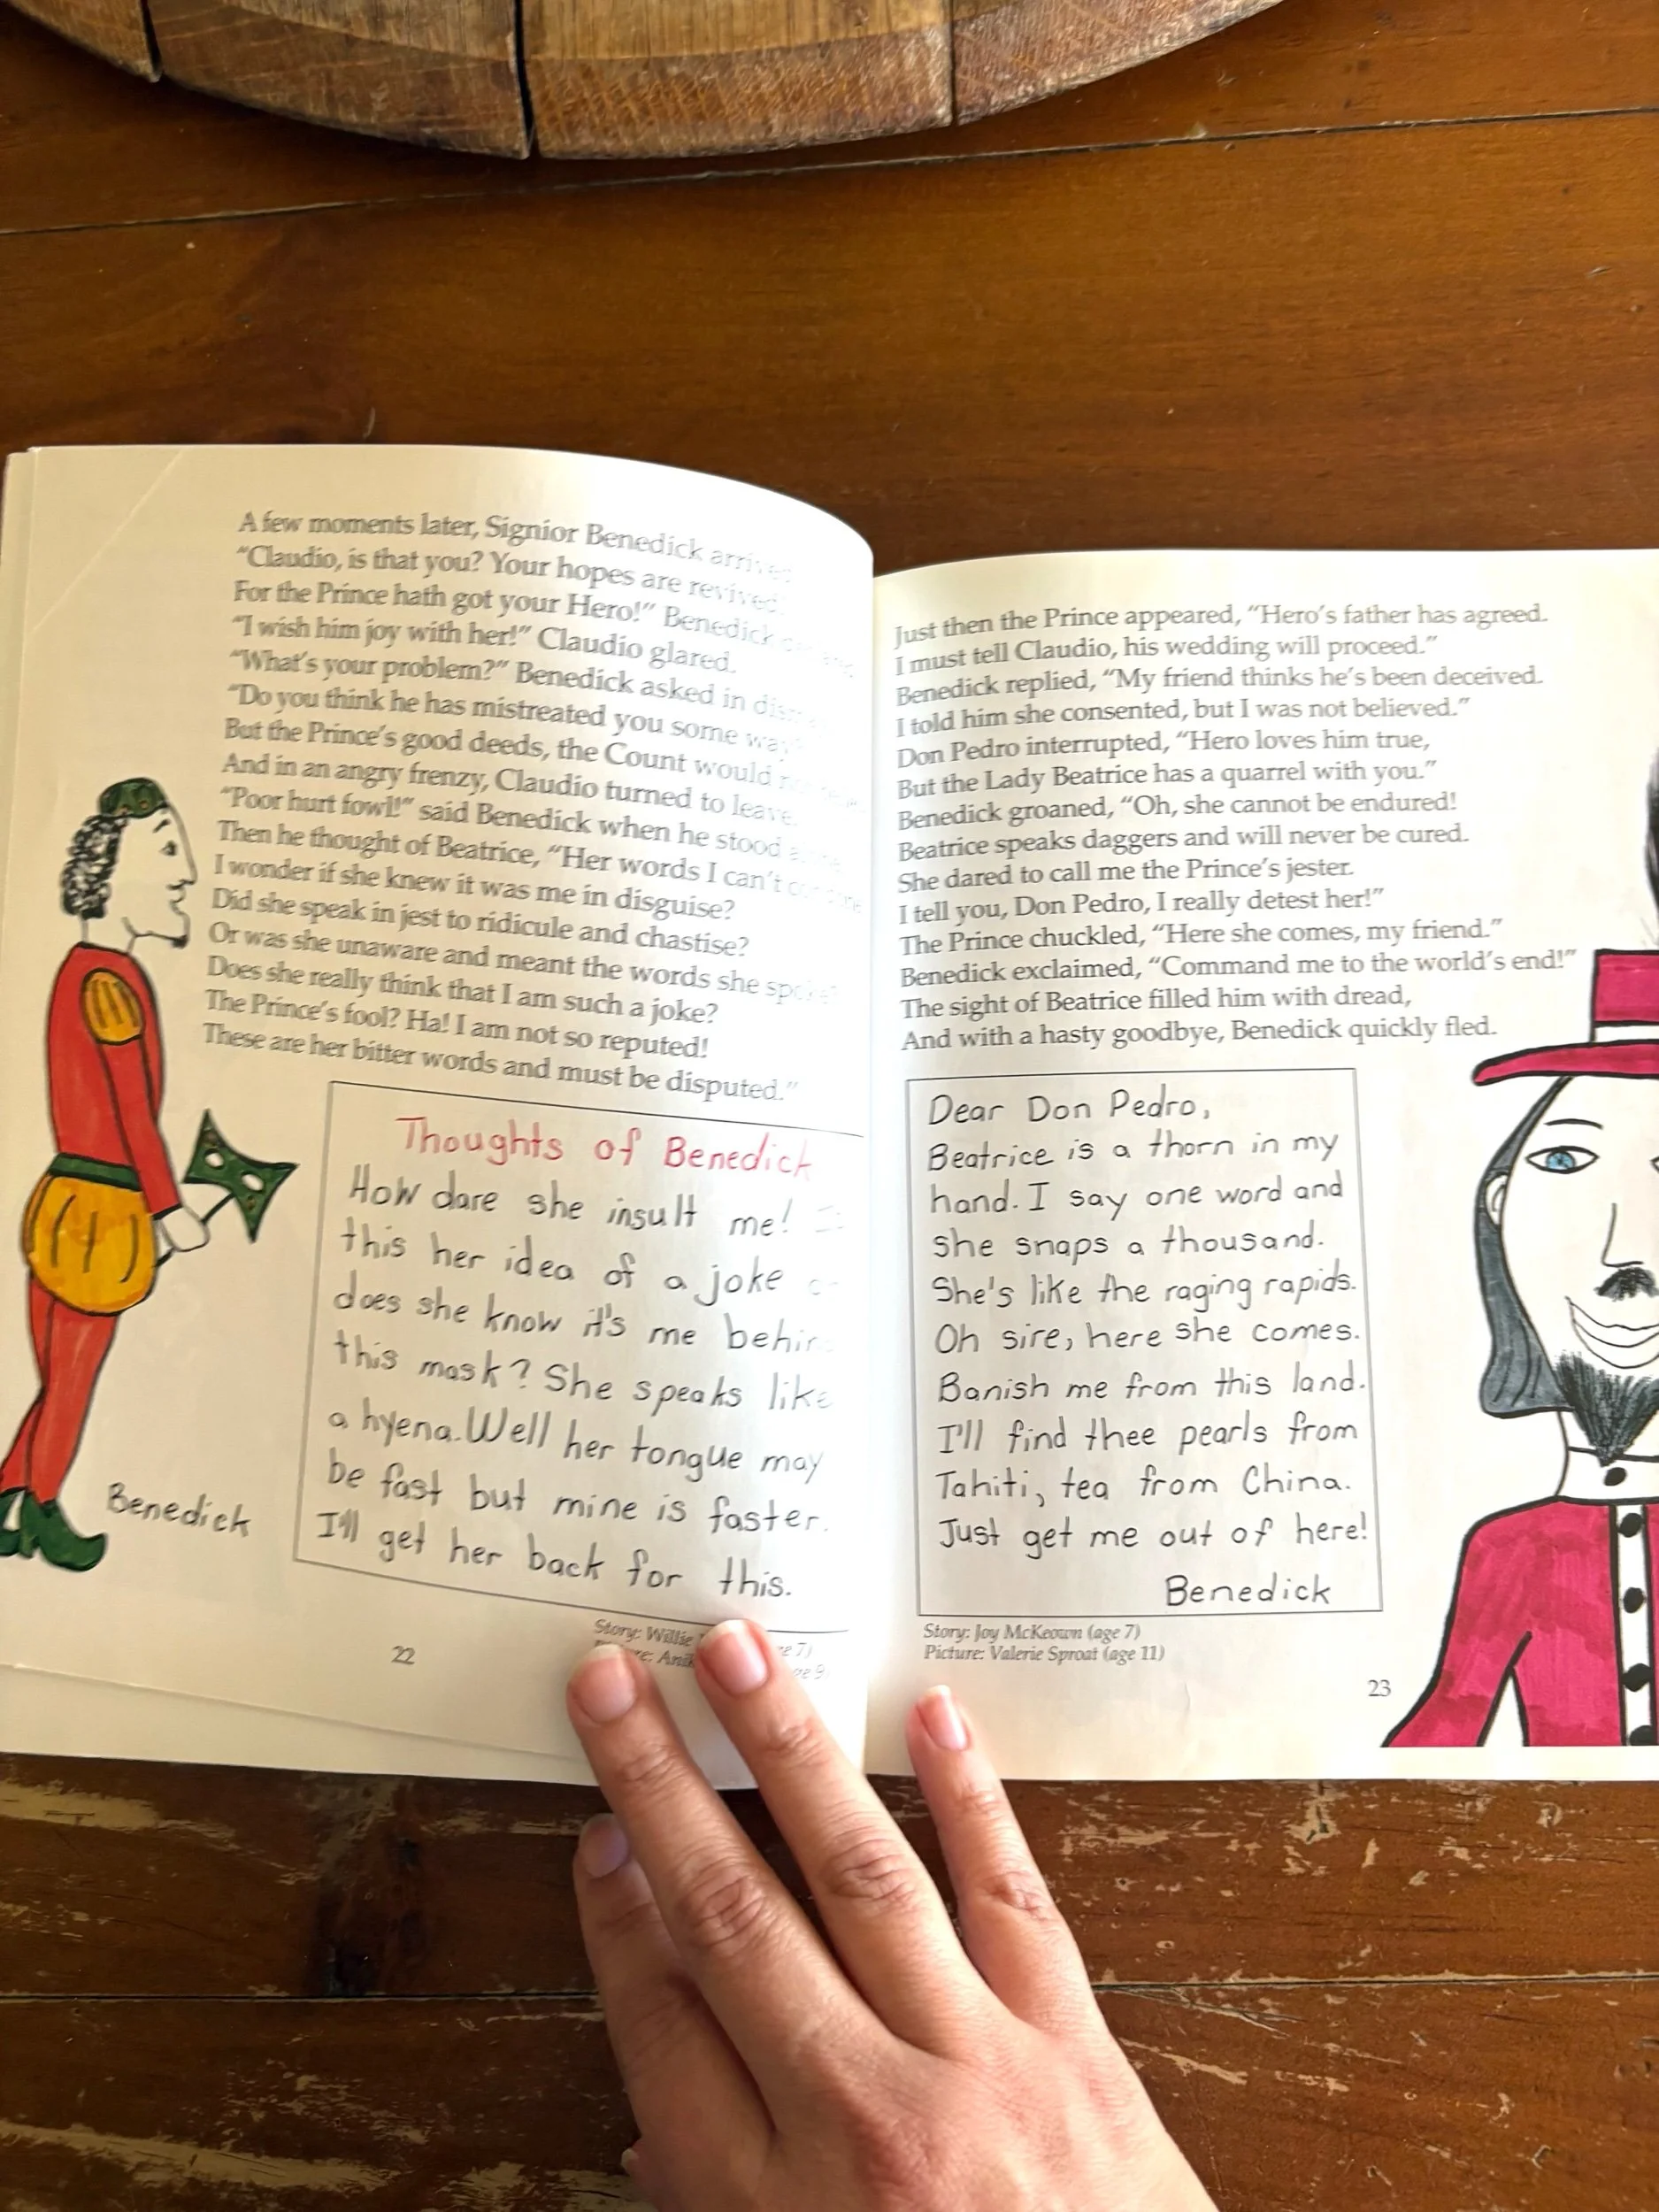 A few moments later, Signior Benedick arrived
“Claudio, is that you? Your hopes are revived
For the Prince hath got your Hero!” Benedick
“I wish him joy with her!” Claudio glared.
“What’s your problem?” Benedick asked in
“Do you think he has mistreated you some way
But the Prince’s good deeds, the Count would
And in an angry frenzy, Claudio turned to leave.
“Poor hurt fowl!” said Benedick when he stood
Then he thought of Beatrice, “Her words I can’t
I wonder if she knew it was me in disguise?
Did she speak in jest to ridicule and chastise?
Or was she unaware and meant the words she
Does she really think that I am such a joke?
The Prince’s fool? Ha! I am not so reputed!
These are her bitter words and must be disputed.”
Thoughts of Benedick
How dare she insult me!
this her idea of a joke
does she know it's me
this mask? She speaks like
a hyena. Well her tongue may
be fast but mine is faster.
I'll get her back for this.
Benedick
Story: Willie
22
Just then the Prince appeared, “Hero’s father has agreed.
I must tell Claudio, his wedding will proceed.”
Benedick replied, “My friend thinks he’s been deceived.
I told him she consented, but I was not believed.”
Don Pedro interrupted, “Hero loves him true,
But the Lady Beatrice has a quarrel with you.”
Benedick groaned, “Oh, she cannot be endured!
Beatrice speaks daggers and will never be cured.
She dared to call me the Prince’s jester.
I tell you, Don Pedro, I really detest her!”
The Prince chuckled, “Here she comes, my friend.”
Benedick exclaimed, “Command me to the world’s end!”
The sight of Beatrice filled him with dread,
And with a hasty goodbye, Benedick quickly fled.
Dear Don Pedro,
Beatrice is a thorn in my
hand. I say one word and
she snaps a thousand.
She's like the raging rapids.
Oh sire, here she comes.
Banish me from this land.
I'll find thee pearls from
Tahiti, tea from China.
Just get me out of here!
Benedick
Story: Joy McKeown (age 7)
Picture: Valerie Sproat (age 11)
23